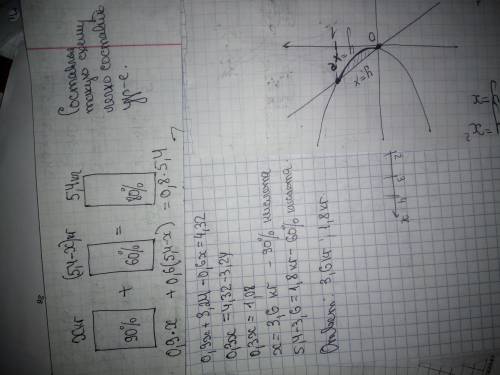 Составляя
такую схему
легко составить
ур-е.
x кг (5,4-x)кг 5,4 кг
90% + 60% = 80%
0,9·x + 0,6(5,4-x) = 0,8·5,4
0,9x + 3,24 - 0,6x = 4,32
0,3x = 4,32 - 3,24
0,3x = 1,08
x = 3,6 кг - 90% кислота
5,4-3,6 = 1,8 кг - 60% кислота.
Ответ: 3,6 кг, 1,8 кг
0
y=x
2 3 4 x